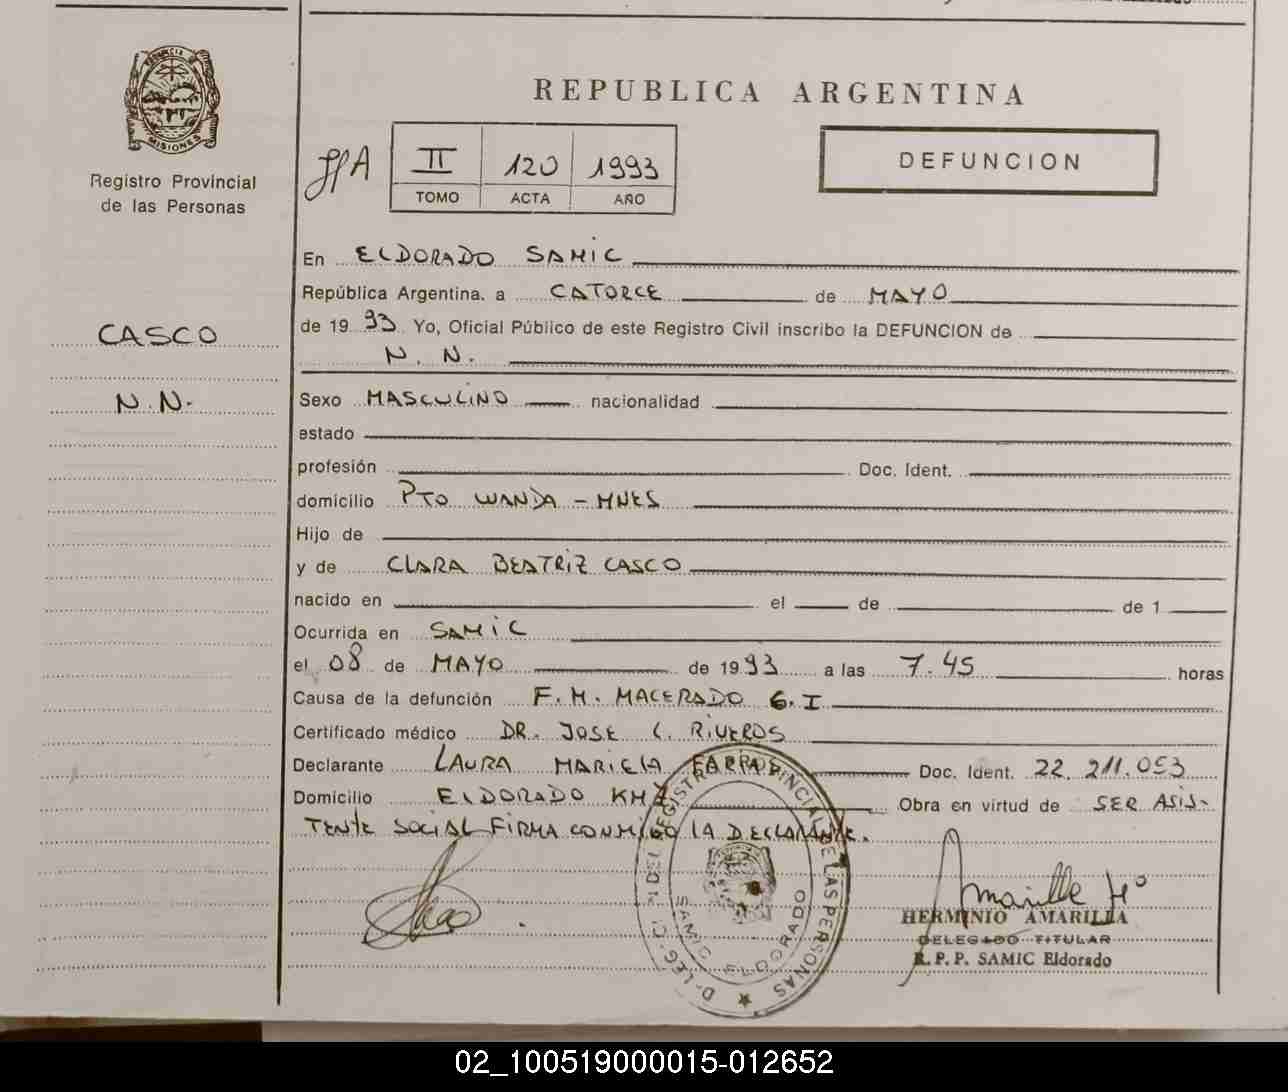 PROVINCIA DE
MISIONES
Registro Provincial
de las Personas
REPUBLICA ARGENTINA
DEFUNCION
II 120 1993
TOMO ACTA AÑO
CASCO
N.N.
En ELDORADO SAMIC
República Argentina, a CATORCE de MAYO
de 19 93 Yo, Oficial Público de este Registro Civil inscribo la DEFUNCION de
N. N.
Sexo MASCULINO nacionalidad
estado
profesión Doc. Ident.
domicilio PTO WANDA - MNES
Hijo de
y de CLARA BEATRIZ CASCO
nacido en el de de 1
Ocurrida en SAMIC
el 08 de MAYO de 19 93 a las 7.45 horas
Causa de la defunción F. M. MACERADO G. I
Certificado médico DR. JOSE L. RIVEROS
Declarante LAURA MARIELA Doc. Ident. 22.211.053
Domicilio ELDORADO KM Obra en virtud de SER ASIS-
TENTE SOCIAL FIRMA CONMIGO LA DECLARANTE.
DEL REGISTRO PROVINCIAL DE LAS PERSONAS
SAMIC ELDORADO
Amarilla Hº
HERMINIO AMARILLA
DELEGADO TITULAR
R. P. P. SAMIC Eldorado
02_100519000015-012652